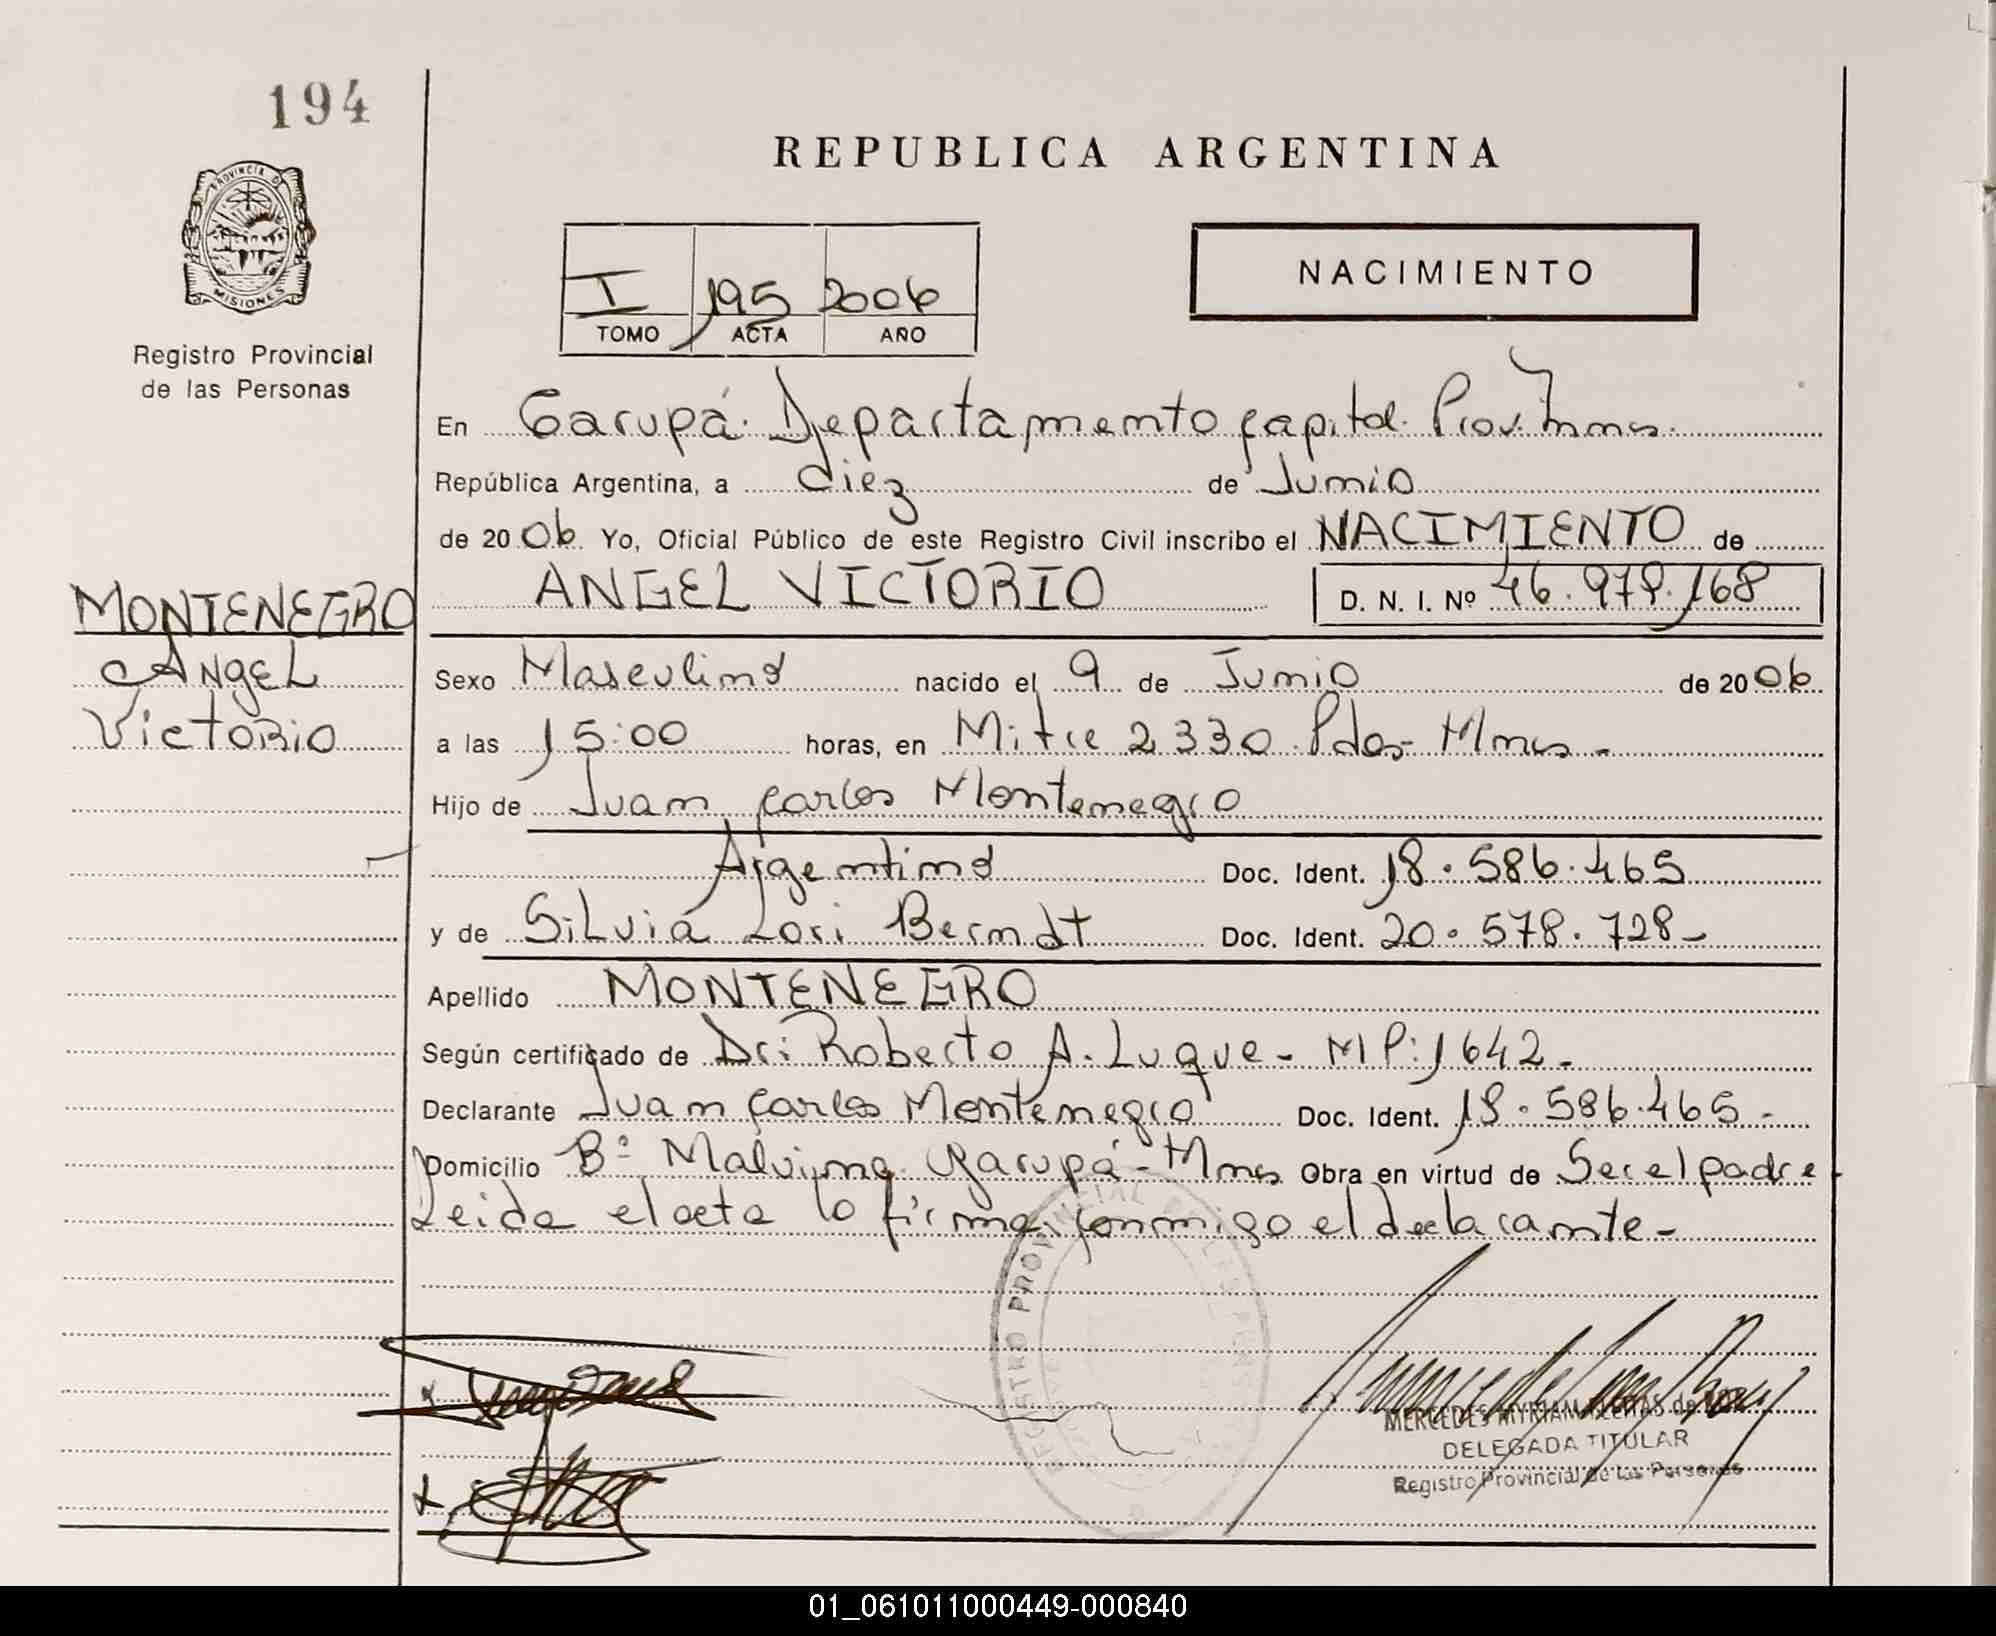 194
REPUBLICA ARGENTINA
PROVINCIA DE
MISIONES
Registro Provincial
de las Personas
NACIMIENTO
I 195 2006
TOMO ACTA AÑO
En Garupá. Departamento Capital. Prov. Mnes.
República Argentina, a diez de Junio
de 2006 Yo, Oficial Público de este Registro Civil inscribo el NACIMIENTO de
ANGEL VICTORIO D. N. I. Nº 46.978.168
MONTENEGRO
ANgEL
VictoRio
Sexo Masculino nacido el 9 de Junio de 2006
a las 15:00 horas, en Mitre 2330 Pdas- Mnes-
Hijo de Juan Carlos Montenegro
Argentino Doc. Ident. 18.586.465
y de Silvia Lori Berndt Doc. Ident. 20.578.728-
Apellido MONTENEGRO
Según certificado de Dr: Roberto A. Luque- MP: 1642-
Declarante Juan Carlos Montenegro Doc. Ident. 18.586.465-
Domicilio Bº Malvina Garupá-Mnes Obra en virtud de Ser el padre
Leida el acta lo firma conmigo el declarante-
REGISTRO PROVINCIAL DE LAS PERSONAS
MERCEDES MYRIAM de
DELEGADA TITULAR
Registro Provincial de las Personas
01_061011000449-000840